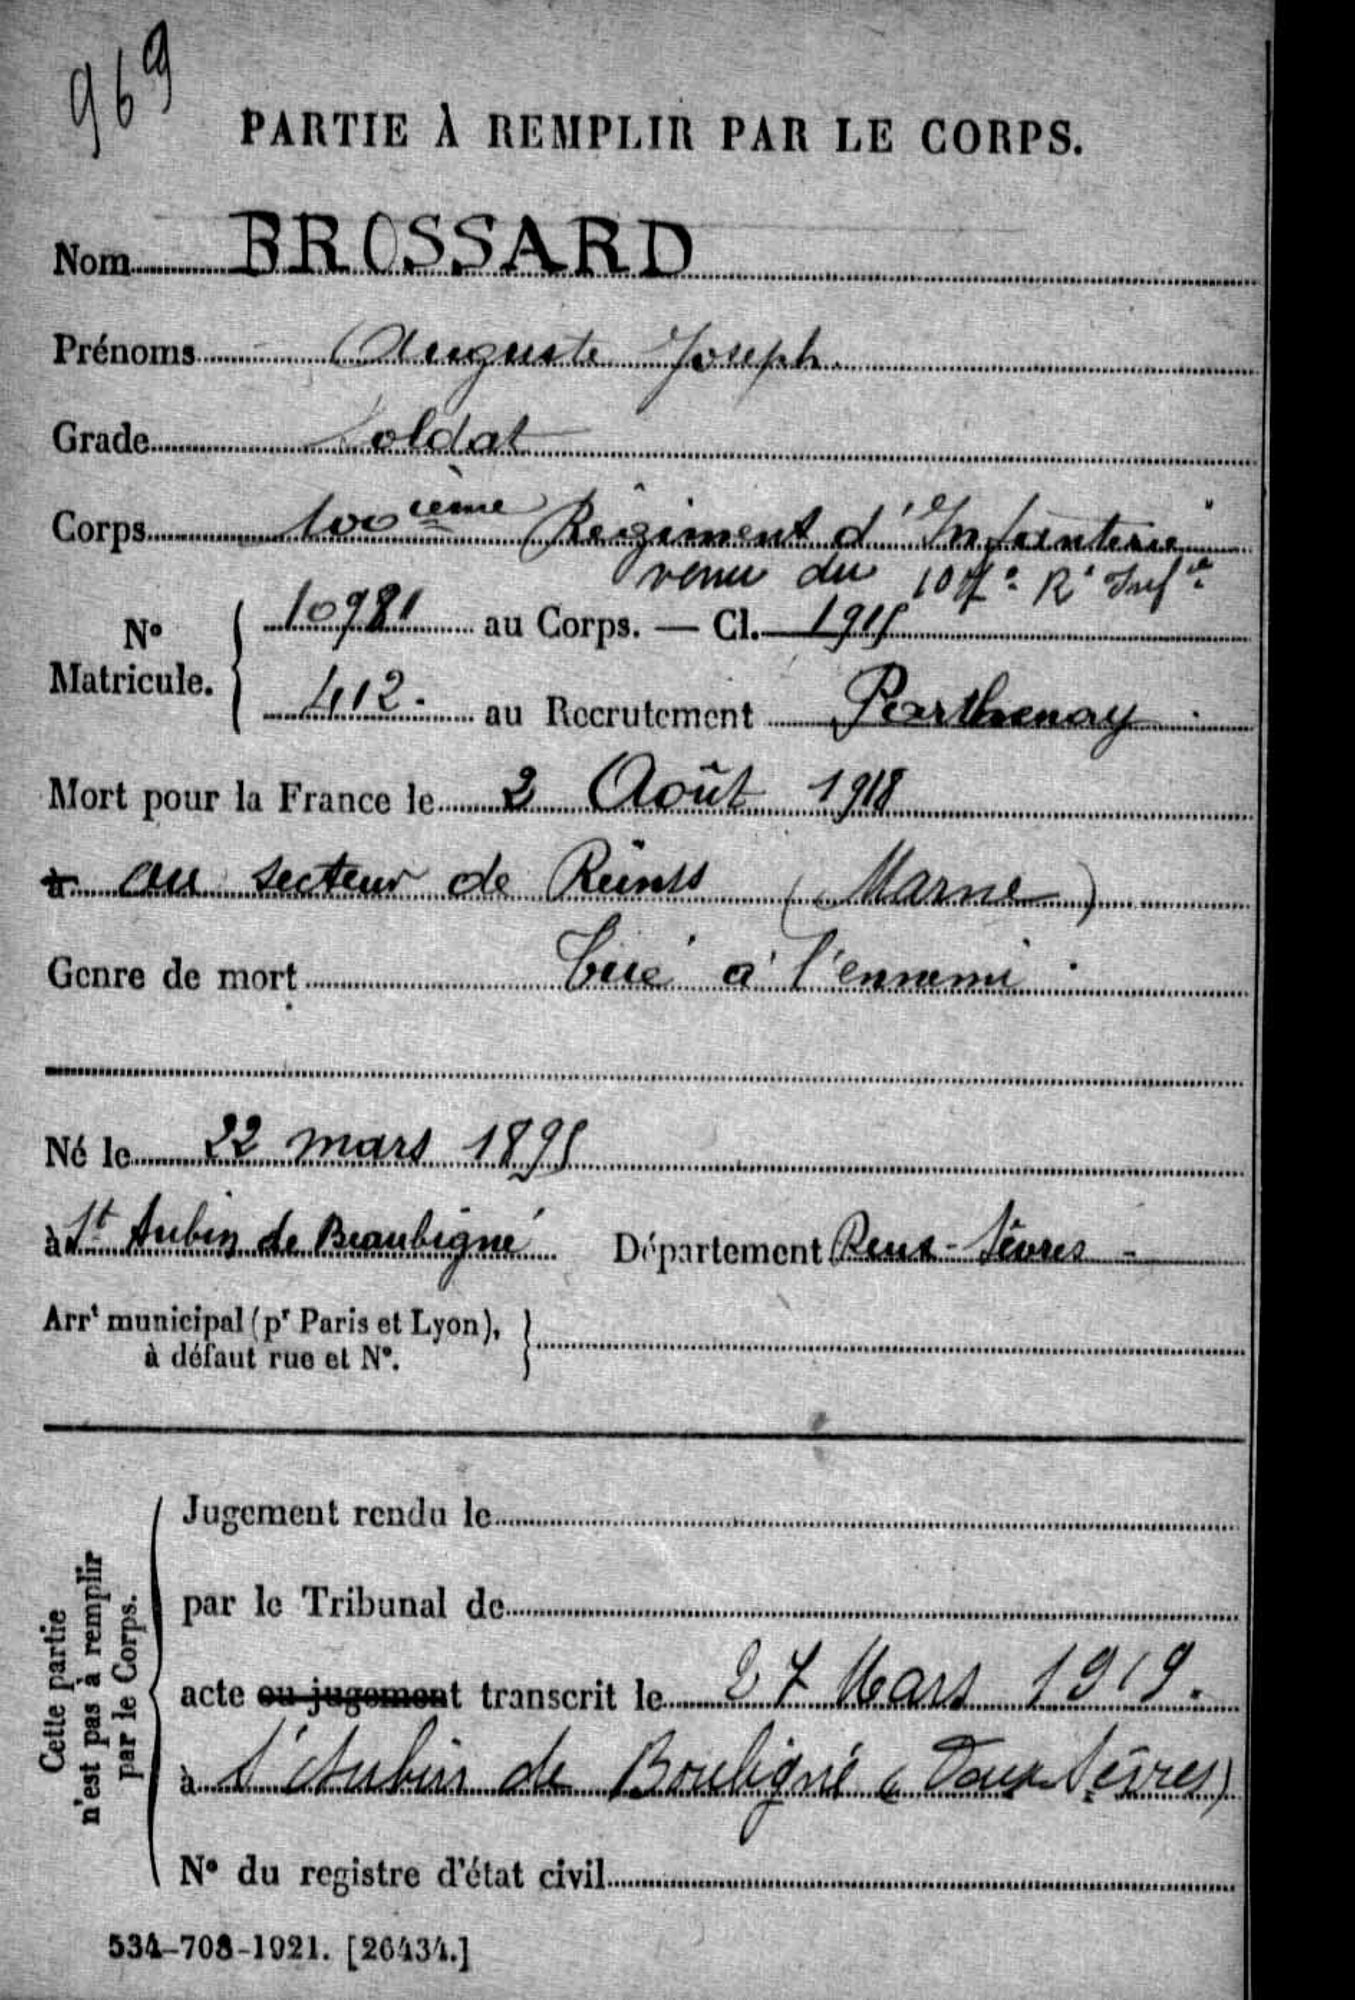 969
PARTIE À REMPLIR PAR LE CORPS.
Nom BROSSARD
Prénoms Auguste Joseph
Grade Soldat
Corps 100ième Régiment d'Infanterie
venu du 107e Rt Infie
No Matricule. { 10981 au Corps. — Cl. 1915
412. au Recrutement Parthenay
Mort pour la France le 2 Août 1918
à au secteur de Reims (Marne)
Genre de mort Tué à l'ennemi
Né le 22 mars 1895
à St Aubin de Beaubigné Département Deux-Sèvres -
Arrt municipal (pr Paris et Lyon), à défaut rue et No. }
Cette partie n'est pas à remplir par le Corps.
Jugement rendu le
par le Tribunal de
acte ou jugement transcrit le 27 Mars 1919.
à St Aubin de Boubigné (Deux Sèvres)
No du registre d'état civil
534-708-1921. [26434.]